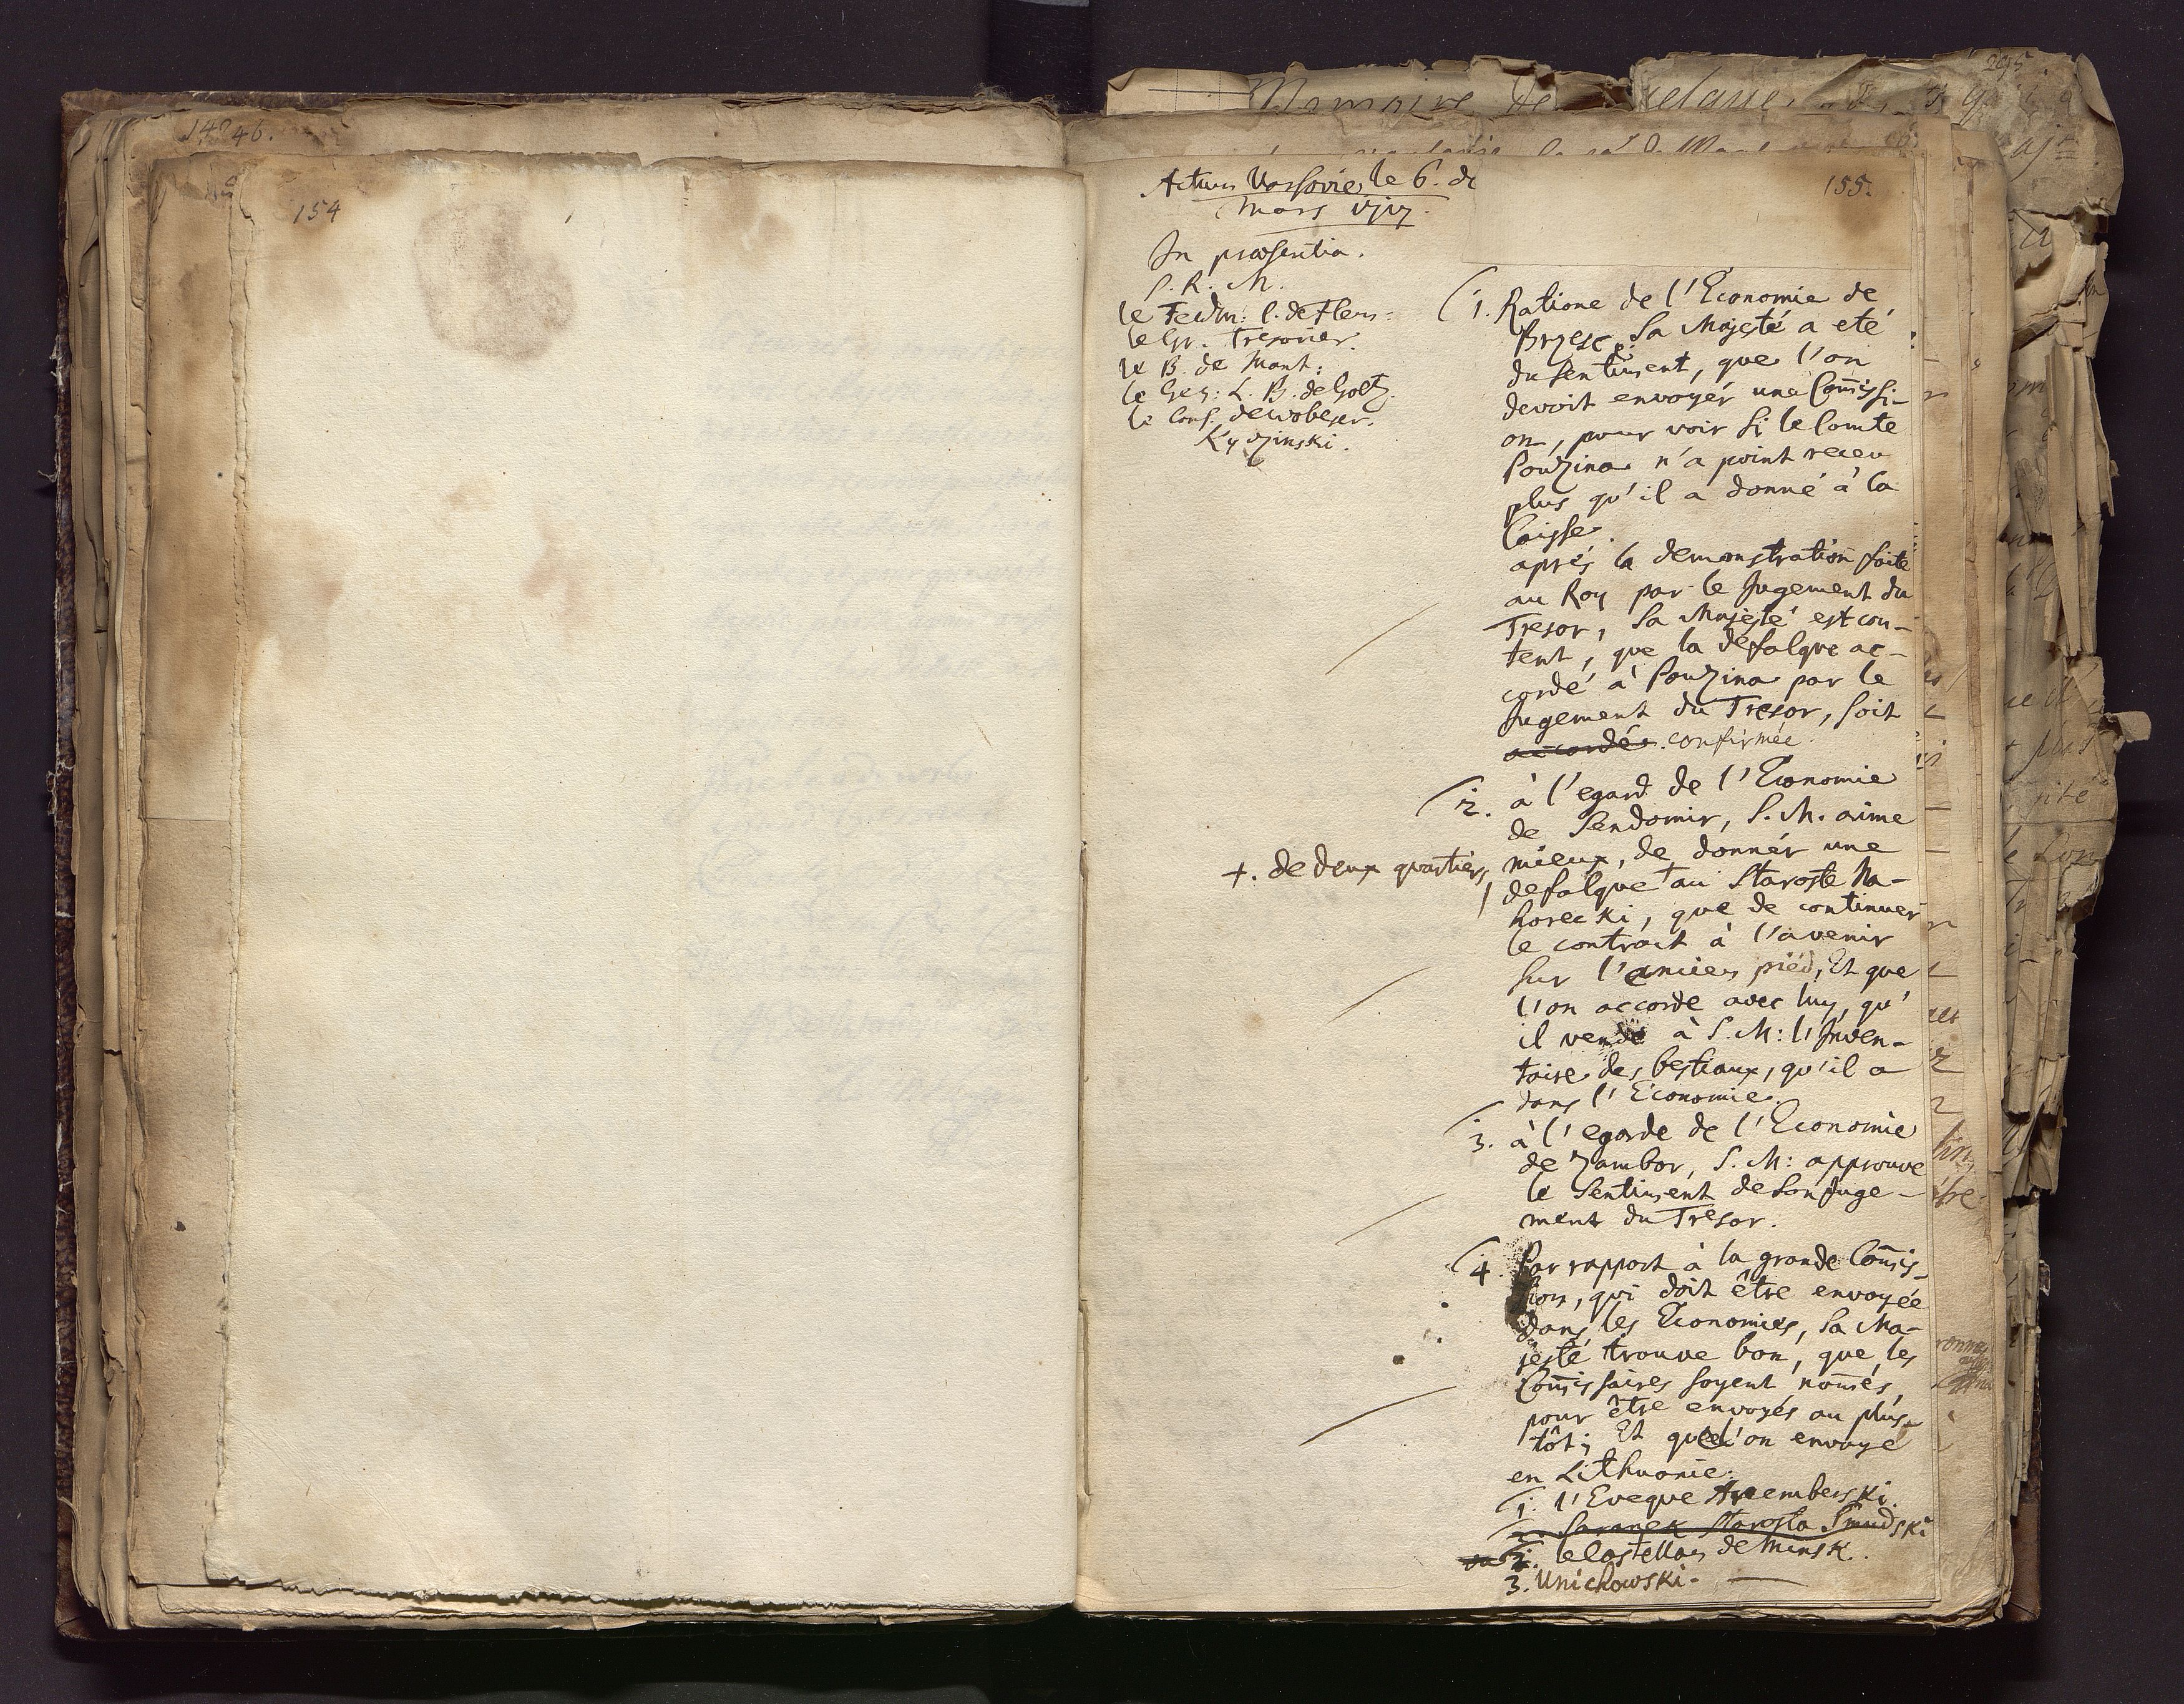 14746.
154
295.
Memoire de
155.
Actum Varsovie, le 6. de
Mars 1717.
In præsentia.
S. R. M.
le Feldm: C. de Flem:
le Gr. Tresorier.
le B. de Mant:
le Gen: L. B. de Goltz.
le Cons. de Wobeser.
Kyczinski.
1. Ratione de l'Economie de
Brzesc. Sa Majesté a eté
du sentiment, que l'on
devoit envoyér une Com̄issi-
on, pour voir si le Comte
Pouzina n'a point receu
plus qu'il a donné à la
Caisse.
aprés la demonstration faite
au Roy par le Jugement du
Tresor, Sa Majesté est con-
tent, que la defalque ac-
cordé à Pouzina par le
Jugement du Tresor, soit
accordée. confirmée.
2. à l'egard de l'Economie
de Sendomir, S. M. aime
mieux, de donnér une
+. de deux quartiers
defalque + au Staroste Na-
horecki, que de continuer
le contract à l'avenir
sur l'ancien piéd, Et que
l'on accorde avec luy, qu'
il vende à S. M: l'Inven-
taire des bestiaux, qu'il a
dans l'Economie.
3. à l'egarde de l'Economie
de Zambor, S. M: approuve
le Sentiment de son Juge-
ment du Tresor.
4. Par rapport à la grande Com̄is-
sion, qui doit être envoyée
dans les Economies, Sa Ma-
jesté trouve bon, que les
Com̄issaires soyent nom̄és,
pour être envoyés au plus
tôt; Et que l'on envoye
en Lithuanie.
1. l'Eveque Ancemberski.
2. Saranek Starosta Smudski
2. le Castellan de Minsk.
3. Unichowski.